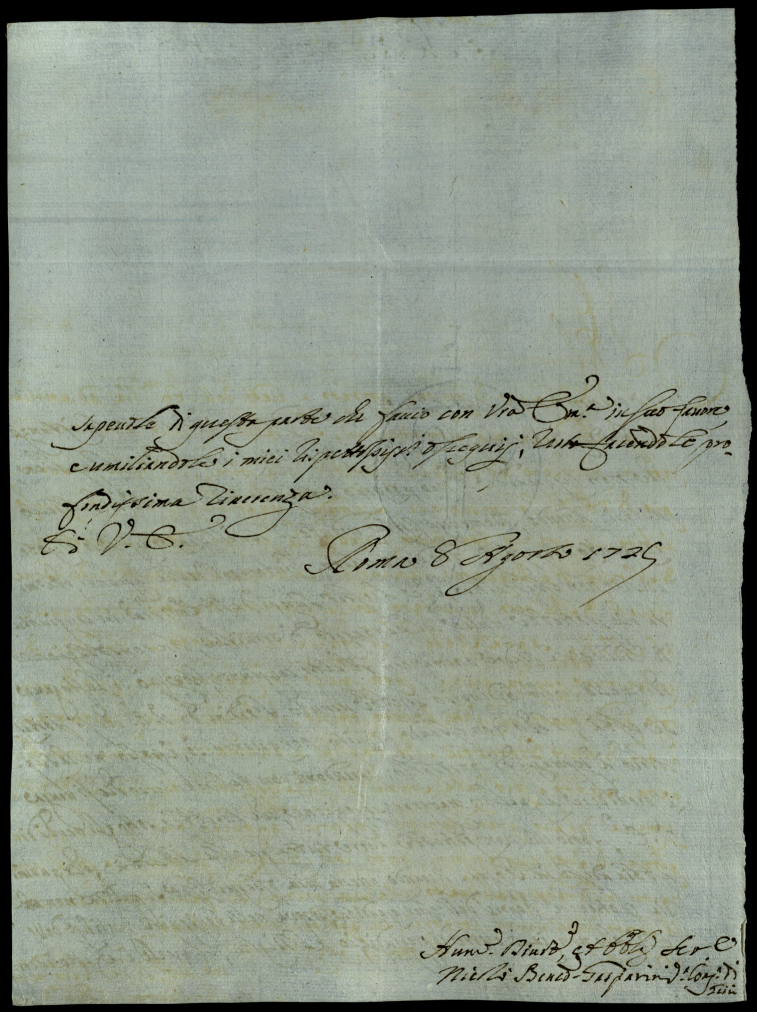 sapendole di questa parte che faccio con Vra Em.ª in suo favore
e umiliandole i miei rispettosiss.i ossequij, resto facendole pro-
fondissima riverenza.
Di V. E.
Roma 8 Agosto 1725
Hum.º Divot.º et Obblig. Ser.e
Nicolò Bened. Gasparini